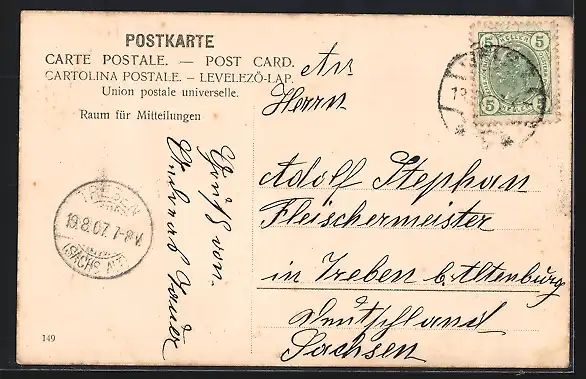 POSTKARTE
CARTE POSTALE. — POST CARD.
CARTOLINA POSTALE. — LEVELEZŐ-LAP.
Union postale universelle.
Raum für Mitteilungen
An
Herrn
Adolf Stephan
Fleischermeister
in Treben b. Altenburg
Deutschland
Sachsen
Gruß von
TREBEN
19.8.07. 7-8V.
(SACHS.
5 HELLER 5
5 5
149